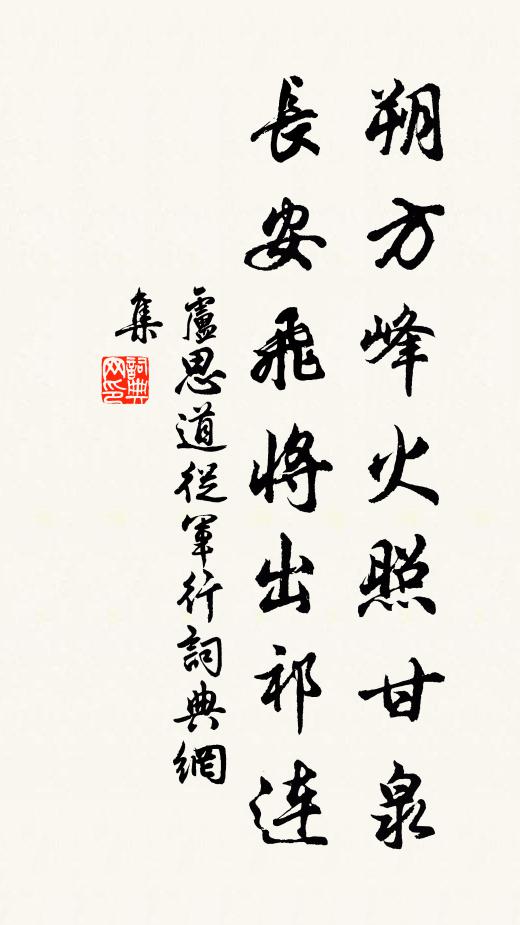 朔方峰火照甘泉
長安飛將出祁連
盧思道從軍行詞典網
集
詞典
网印